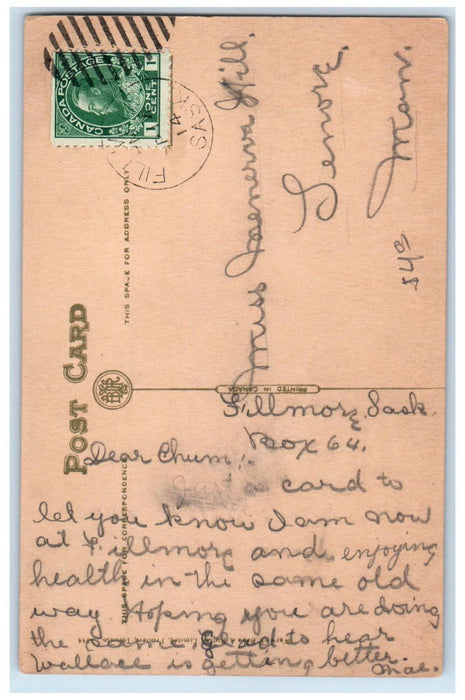 CANADA POSTAGE
1 ONE CENT 1
SASK
14
POST CARD
THIS SPACE FOR ADDRESS ONLY
THIS SPACE FOR CORRESPONDENCE
PRINTED IN CANADA
Miss Menerva Hill.
Lenore,
Man.
Fillmore, Sask.
Box 64.
Dear Chum:
Just a card to
let you know I am now
at Fillmore and enjoying
health in the same old
way Hoping you are doing
the same. Glad to hear
Wallace is getting better.
Mae.